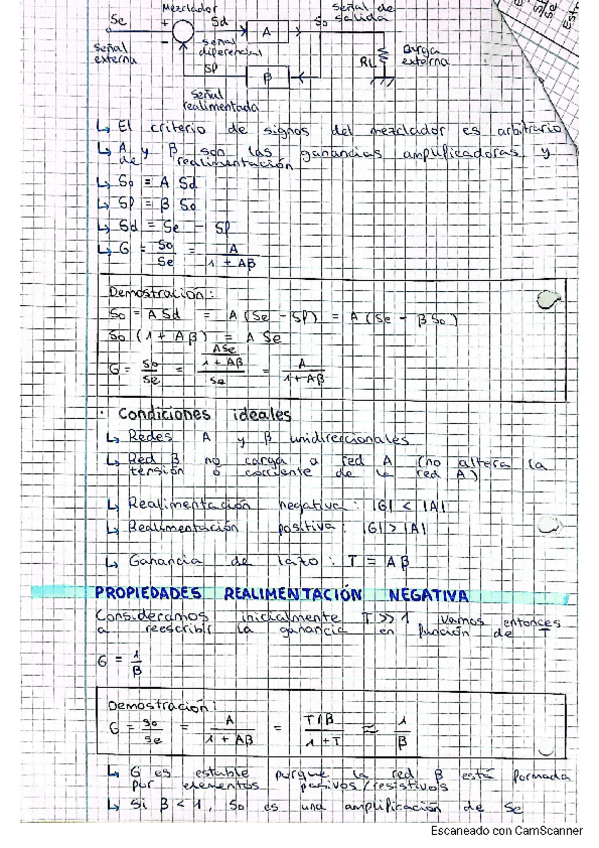 Mezclador
Se + Sd A So señal de salida
-
señal externa
señal diferencial
RL
Carga externa
Sp
β
señal realimentada
↳ El criterio de signos del mezclador es arbitrario
↳ A y β son las ganancias amplificadoras y
de realimentación
↳ So = A Sd
↳ Sp = β So
↳ Sd = Se - Sp
↳ G = So/Se = A/(1 + Aβ)
Demostración:
So = A Sd = A (Se - Sp) = A (Se - β So)
So (1 + Aβ) = A Se
G = So/Se = (ASe/(1 + Aβ))/Se = A/(1 + Aβ)
· Condiciones ideales
↳ Redes A y β unidireccionales
↳ Red β no carga a red A (no altera la
tensión o corriente de la red A)
↳ Realimentación negativa: |G| < |A|
↳ Realimentación positiva: |G| > |A|
↳ Ganancia de lazo: T = Aβ
PROPIEDADES REALIMENTACIÓN NEGATIVA
Consideramos inicialmente T >> 1 Vamos entonces
a reescribir la ganancia en función de T
G = 1/β
Demostración:
G = So/Se = A/(1 + Aβ) = (T/β)/(1 + T) ≈ 1/β
↳ G es estable porque la red β está formada
por elementos pasivos/resistivos
↳ Si β < 1, So es una amplificación de Se
Escaneado con CamScanner